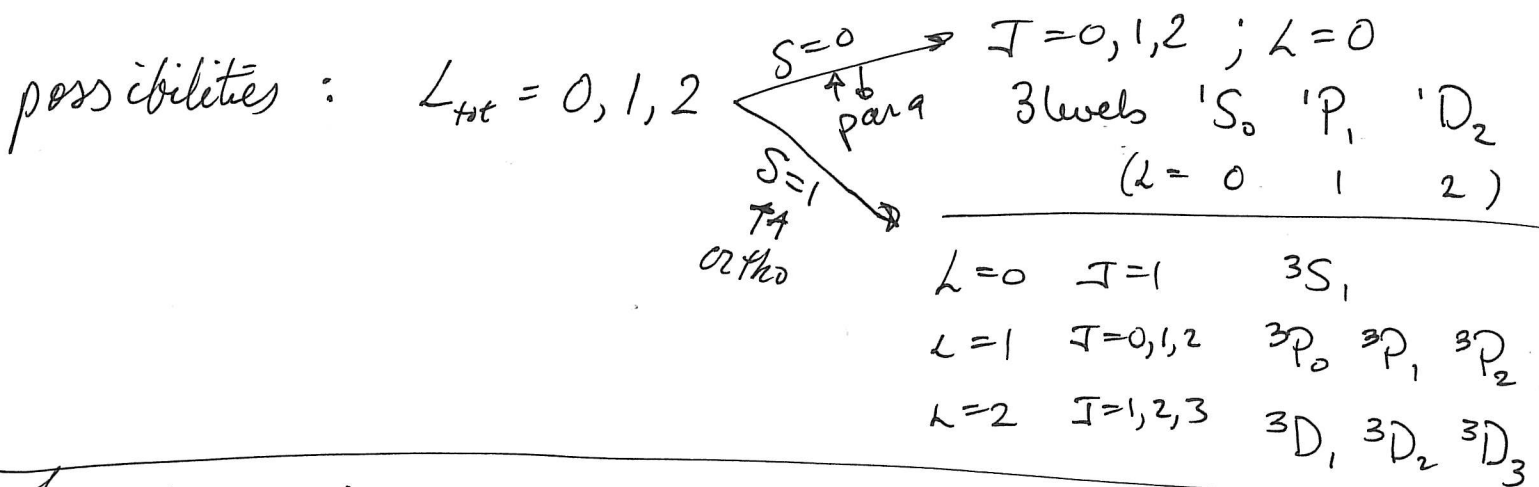 possibilities : L_tot = 0, 1, 2
S=0
↑↓
para
J=0,1,2 ; L=0
3 levels ¹S₀ ¹P₁ ¹D₂
(L = 0 1 2)
S=1
↑↑
ortho
L=0 J=1 ³S₁
L=1 J=0,1,2 ³P₀ ³P₁ ³P₂
L=2 J=1,2,3 ³D₁ ³D₂ ³D₃